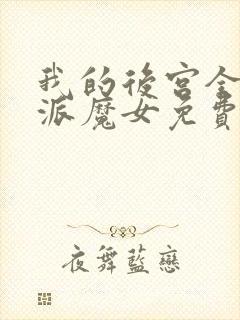 我的後宮全
派魔女免費
夜舞藍戀